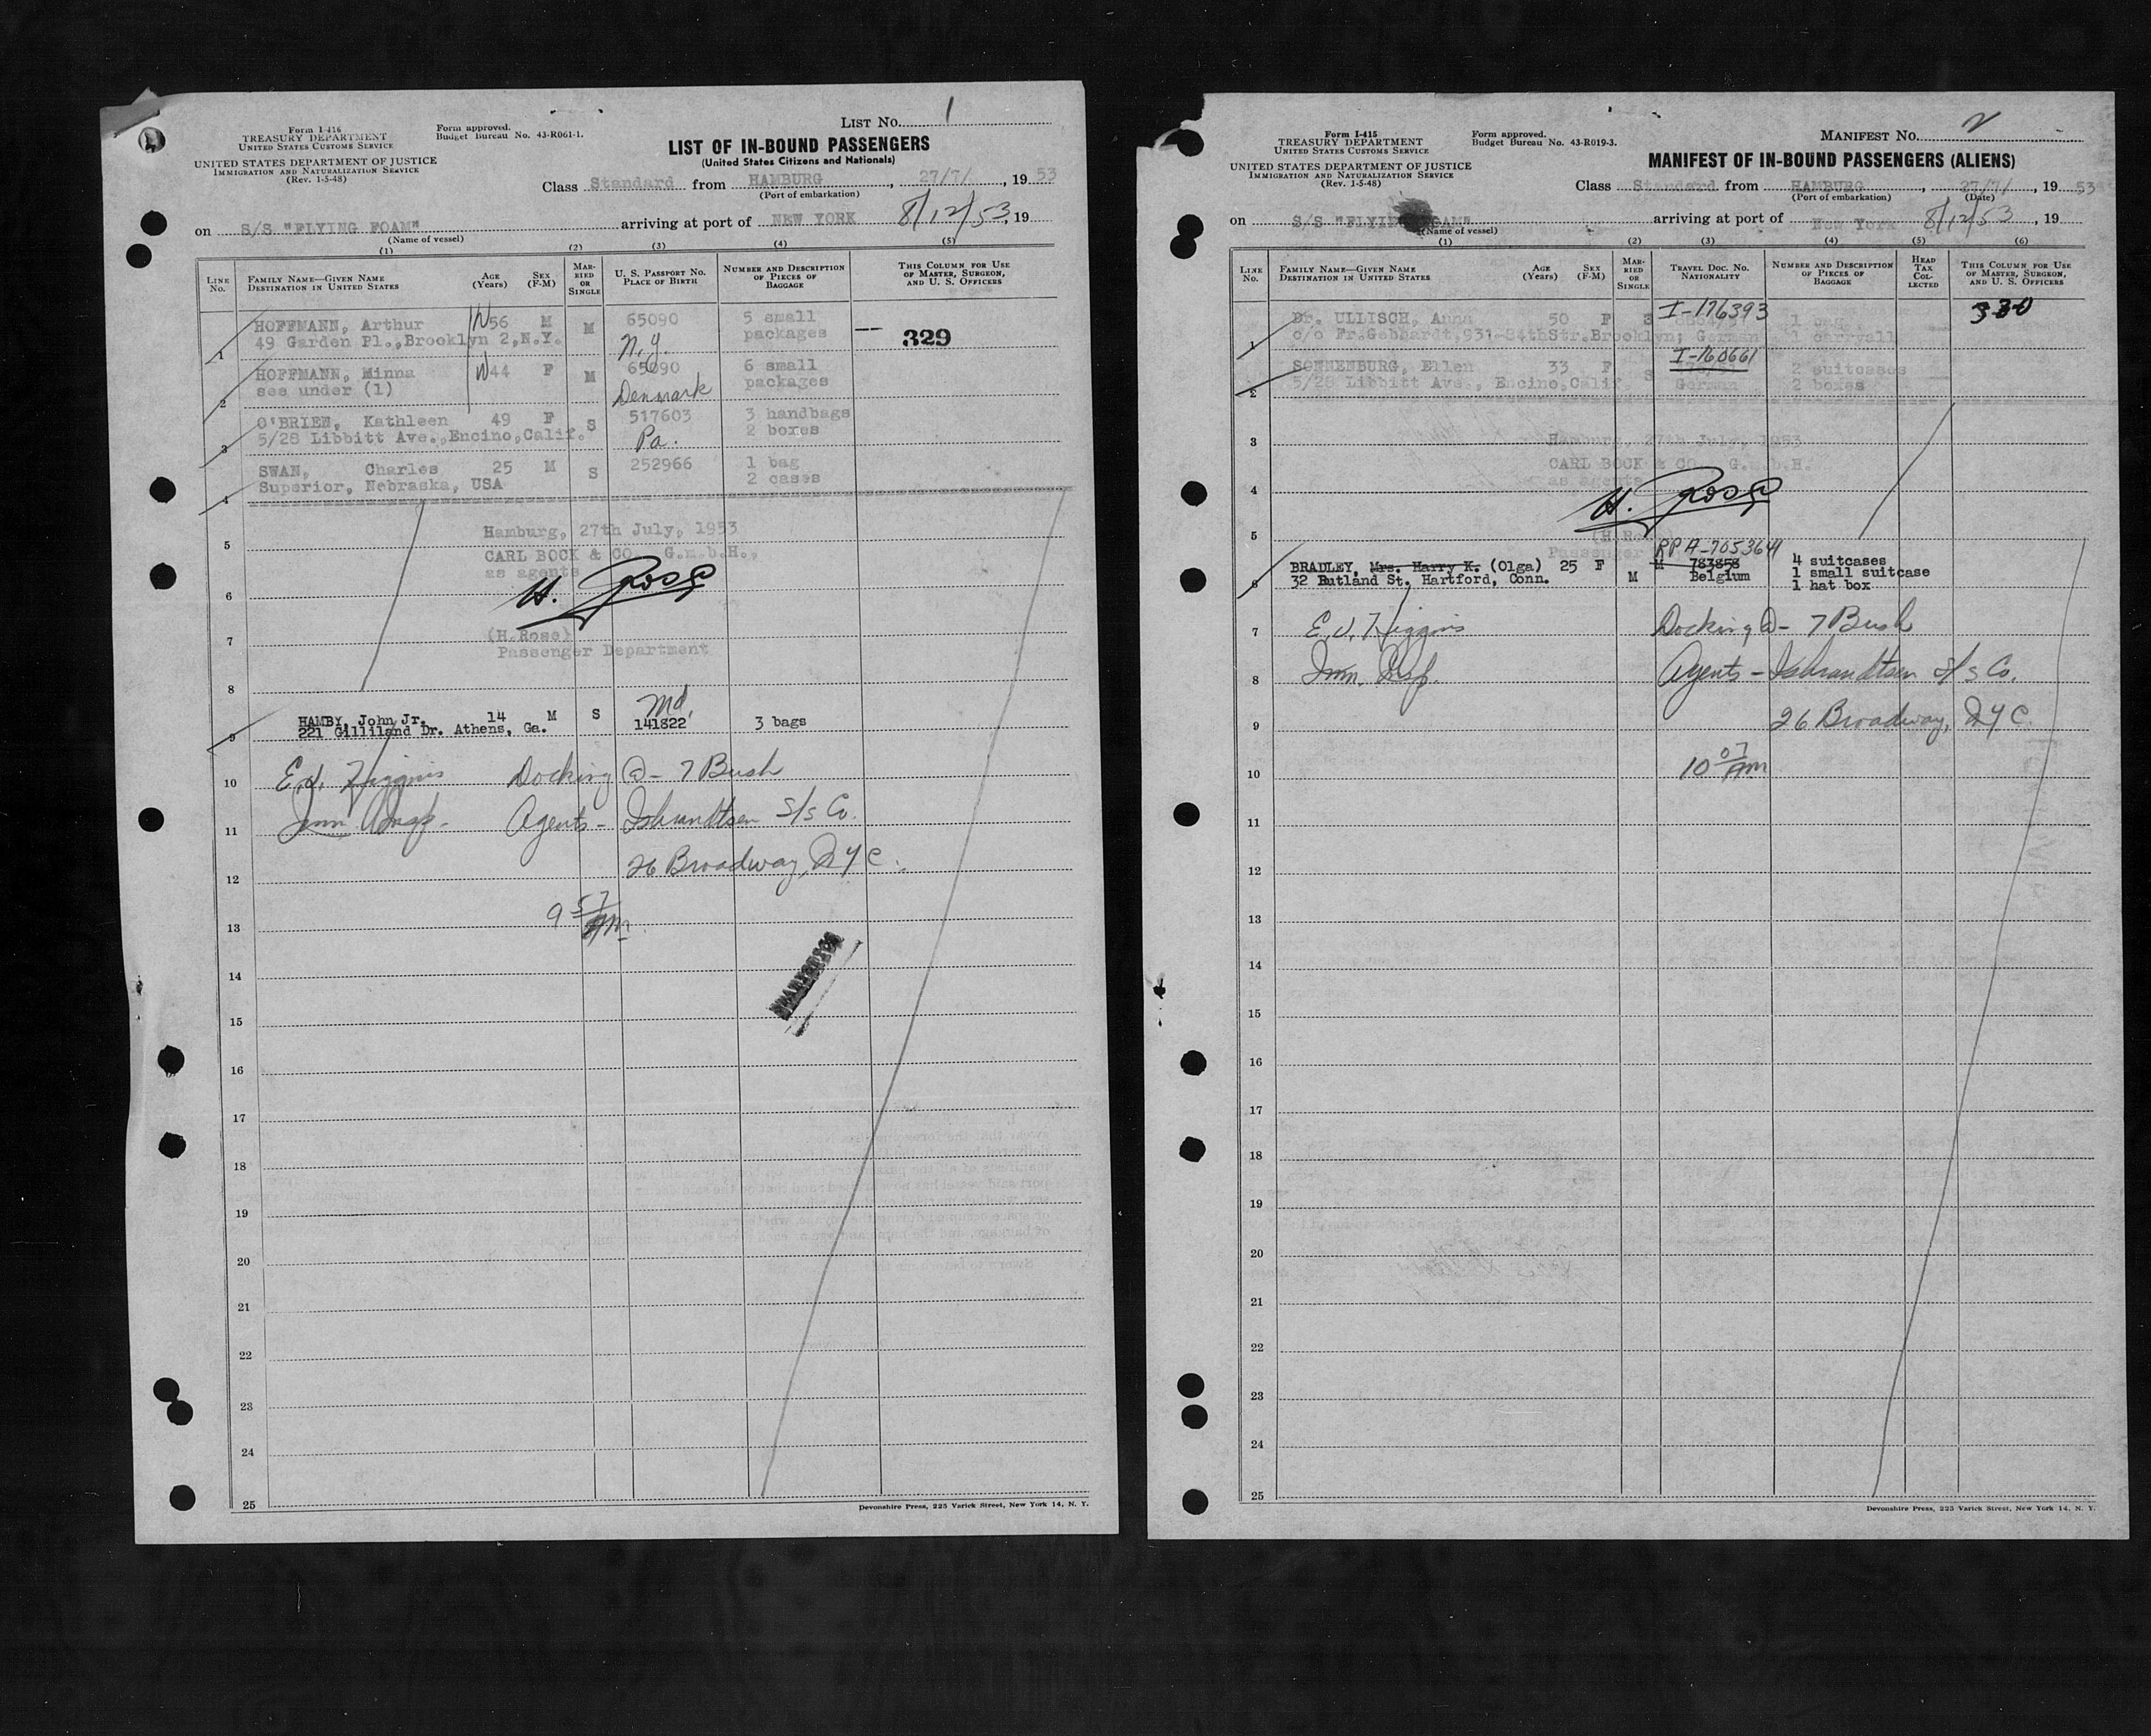 LIST No. 1
Form I-416
TREASURY DEPARTMENT
UNITED STATES CUSTOMS SERVICE
UNITED STATES DEPARTMENT OF JUSTICE
IMMIGRATION AND NATURALIZATION SERVICE
(Rev. 1-5-48)
Form approved.
Budget Bureau No. 43-R061-1.
LIST OF IN-BOUND PASSENGERS
(United States Citizens and Nationals)
Class Standard from HAMBURG, 27/7/, 1953
(Port of embarkation)
on S/S "FLYING FOAM" arriving at port of NEW YORK 8/12/53, 19
(Name of vessel)
(1) (2) (3) (4) (5)
LINE No. FAMILY NAME—GIVEN NAME DESTINATION IN UNITED STATES AGE (Years) SEX (F-M) MARRIED OR SINGLE U. S. PASSPORT No. PLACE OF BIRTH NUMBER AND DESCRIPTION OF PIECES OF BAGGAGE THIS COLUMN FOR USE OF MASTER, SURGEON, AND U. S. OFFICERS
HOFFMANN, Arthur W 56 M M 65090 5 small
1 49 Garden Pl., Brooklyn 2, N.Y. N.Y. packages -- 329
HOFFMANN, Minna W 44 F M 65090 6 small
2 see under (1) Denmark packages
O'BRIEN, Kathleen 49 F S 517603 3 handbags
3 5/28 Libbitt Ave., Encino, Calif. Pa. 2 boxes
SWAN, Charles 25 M S 252966 1 bag
4 Superior, Nebraska, USA 2 cases
5 Hamburg, 27th July, 1953
CARL BOCK & CO. G.m.b.H.,
as agents
6 H. Rose
7 (H. Rose)
Passenger Department
8
Md.
HAMBY, John Jr. 14 M S 141822 3 bags
9 221 Gilliland Dr. Athens, Ga.
10 E.J. Higgins Docking @- 7 Bush
11 Imm Insp. Agents - Isbrandtsen S/S Co.
12 26 Broadway, NYC.
13 9 57 AM
14
15
16
17
18
19
20
21
22
23
24
25
Devonshire Press, 225 Varick Street, New York 14, N. Y.
MANIFEST No. 2
Form I-415
TREASURY DEPARTMENT
UNITED STATES CUSTOMS SERVICE
UNITED STATES DEPARTMENT OF JUSTICE
IMMIGRATION AND NATURALIZATION SERVICE
(Rev. 1-5-48)
Form approved.
Budget Bureau No. 43-R019-3.
MANIFEST OF IN-BOUND PASSENGERS (ALIENS)
Class Standard from HAMBURG, 27/7/, 1953
(Port of embarkation) (Date)
on S/S "FLYING FOAM" arriving at port of New York 8/12/53, 19
(Name of vessel)
(1) (2) (3) (4) (5) (6)
LINE No. FAMILY NAME—GIVEN NAME DESTINATION IN UNITED STATES AGE (Years) SEX (F-M) MARRIED OR SINGLE TRAVEL DOC. No. NATIONALITY NUMBER AND DESCRIPTION OF PIECES OF BAGGAGE HEAD TAX COLLECTED THIS COLUMN FOR USE OF MASTER, SURGEON, AND U. S. OFFICERS
I-176393 330
Dr. ULLISCH, Anna 50 F S 1 bag
1 c/o Fr. Gebhardt, 931-84thStr. Brooklyn; German 1 carryall
I-160661
SONNENBURG, Ellen 33 F S 2 suitcases
2 5/28 Libbitt Ave., Encino, Calif. German 2 boxes
3 Hamburg, 27th July, 1953
CARL BOCK & CO. G.m.b.H.
4 as agents
H. Rose
5 (H. Rose)
Passenger
RPA-705364
BRADLEY, Mrs. Harry K. (Olga) 25 F M 783858 4 suitcases
6 32 Rutland St. Hartford, Conn. M Belgium 1 small suitcase
1 hat box
7 E.J. Higgins Docking @- 7 Bush
8 Imm. Insp. Agents - Isbrandtsen S/S Co.
9 26 Broadway, NYC
10 10 07 AM
11
12
13
14
15
16
17
18
19
20
21
22
23
24
25
Devonshire Press, 225 Varick Street, New York 14, N. Y.